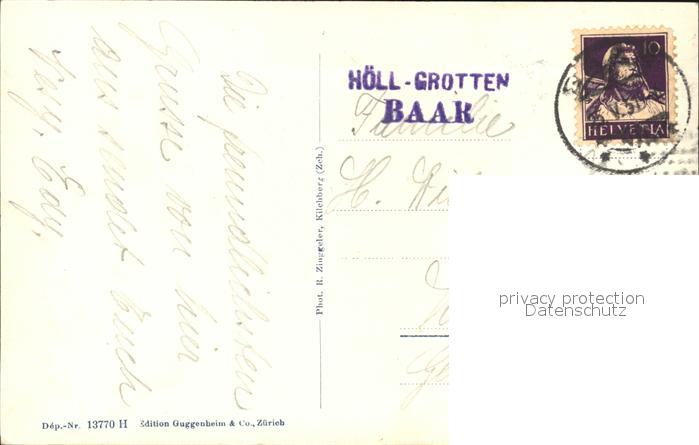 Die freundlichsten
Grüsse von hier
aus sendet Euch
HÖLL-GROTTEN
BAAR
Familie
H.
10
HELVETIA
privacy protection
Datenschutz
Phot. R. Zinggeler, Kilchberg (Zch.)
Dép.-Nr. 13770 H Edition Guggenheim & Co., Zürich